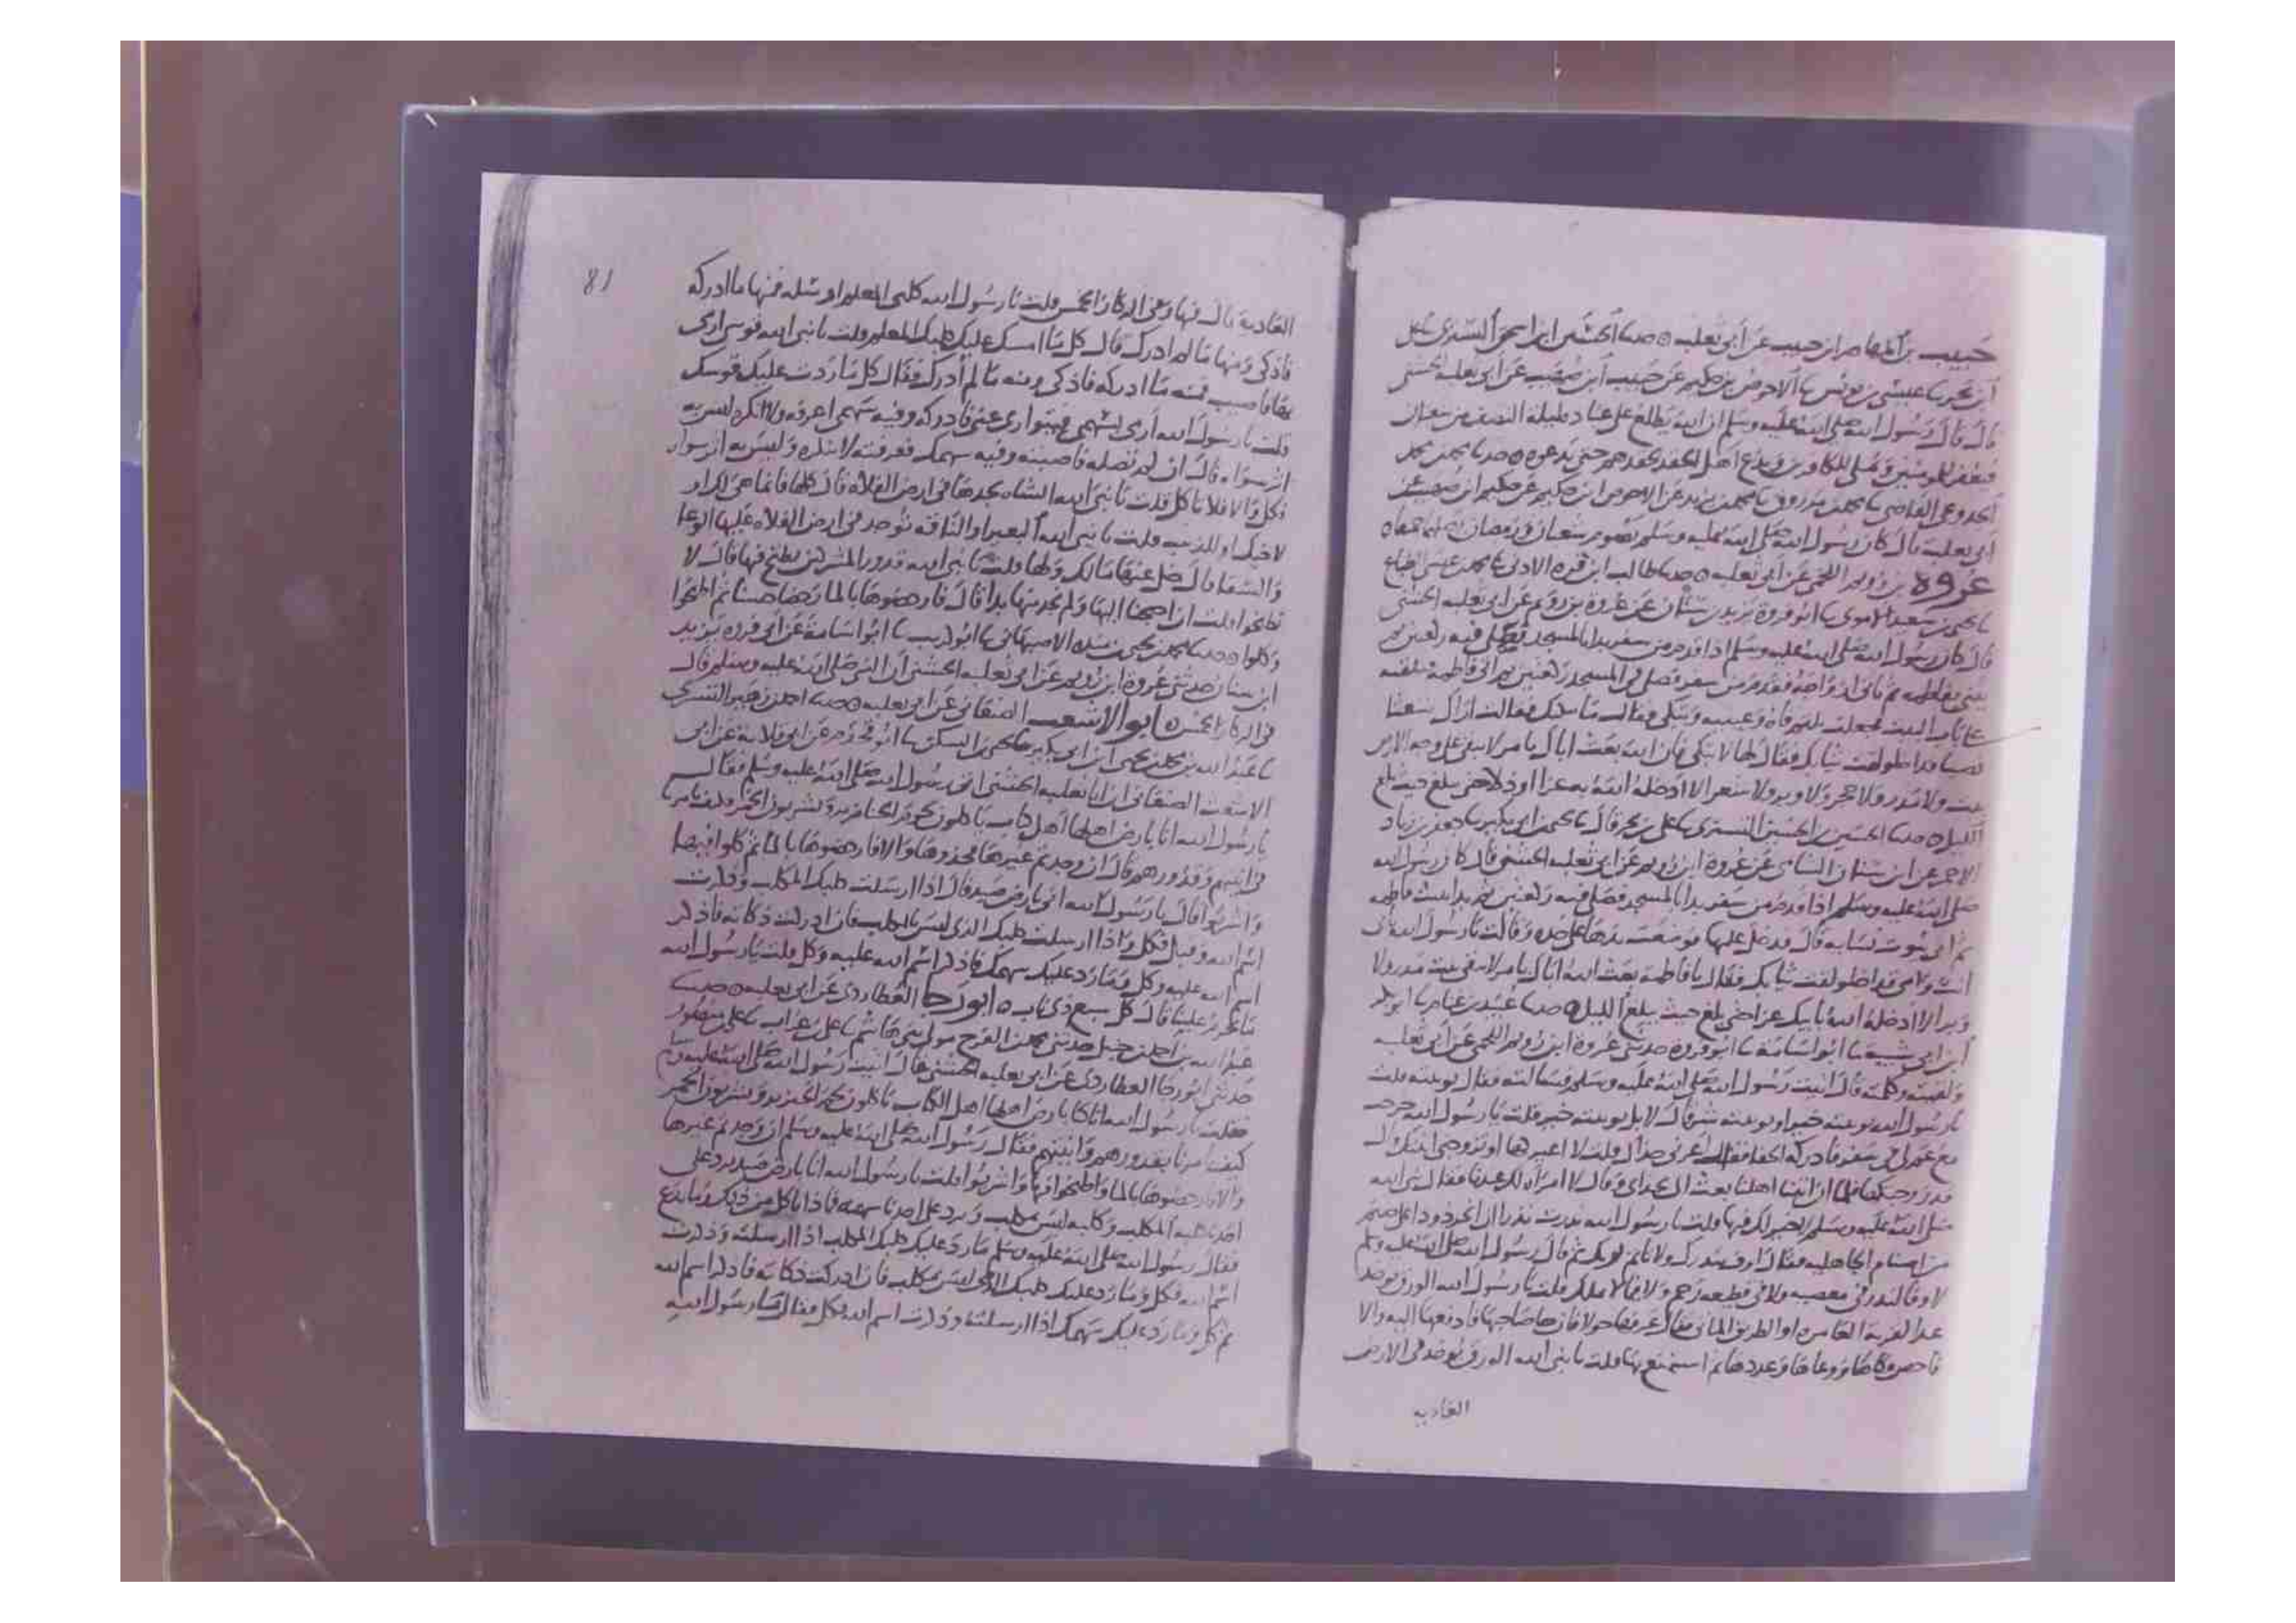 حبيب بن المهاصر ابن حبيب عن أبي ثعلبه ٥ حدثنا الحسين ابن اسحق التستري علي
ابن بحر نا عيسى بن يونس نا الاحوص بن حكيم عن حبيب ابن صهيب عن ابي ثعلبة الخشني
قال قال رسول الله صلى الله عليه وسلم ان الله يطلع على عباده ليلة النصف من شعبان
فيغفر للمومنين ويملي للكافرين ويدع اهل الحقد بحقدهم حتى يدعوه ٥ حدثنا محمد بن محمد
الجدوعي القاضي نا محمد بن مرزوق نا محمد بن يزيد عن الاحوص ابن حكيم عن حكيم ابن صهيب عن
أبي ثعلبة قال كان رسول الله صلى الله عليه وسلم يصوم شعبان ورمضان يصلهما ٥
عروة بن رويم اللخمي عن ابي ثعلبه ٥ حدثنا طالب ابن قرة الادني نا محمد بن عيسى الطباع
نا يحيى بن سعيد الاموي نا ابو فروة يزيد بن سنان عن عروة بن رويم عن ابي ثعلبه الخشني
قال كان رسول الله صلى الله عليه وسلم اذا قدم من سفر بدا بالمسجد فصلى فيه ركعتين ثم
يثني بفاطمه ثم ياتي ازواجه فقدم من سفر فصلى في المسجد ركعتين ثم اتى فاطمه فتلقته
على باب البيت فجعلت تلثم فاه وعينيه وتبكي فقال ما يبكيك فقالت اراك شعثا
نصبا قد اخلولقت ثيابك فقال لها لا تبكي فان الله بعث اباك بامر لا يبقى على وجه الارض
بيت ولا مدر ولا حجر ولا وبر ولا شعر الا ادخله الله به عزا او ذلا حتى يبلغ حيث بلغ
الليل ٥ حدثنا الحسين بن الحسين التستري نا علي بن بحر قال نا محمد بن ابي بكير نا جعفر بن زياد
الاحمر عن ابن سنان الشامي عن عروة ابن رويم عن ابي ثعلبه الخشني قال كان رسول الله
صلى الله عليه وسلم اذا قدم من سفر بدا بالمسجد فصلى فيه ركعتين ثم بدا ببيت فاطمه
ثم اتى بيوت نسايه قال فدخل عليها فوضعت يدها على خده وقالت يا رسول الله بابي
انت وامي قد اخلولقت ثيابك فقال يا فاطمه بعث الله اباك بامر لا يبقى بيت مدر ولا
وبر الا ادخله الله بابيك عزا حتى يبلغ حيث يبلغ الليل ٥ حدثنا عبيد بن غنام نا ابو بكر
ابن ابي شيبه نا ابو اسامة نا ابو فروة حدثني عروة ابن رويم اللخمي عن أبي ثعلبه
ولقيته وكلمته قال اتيت رسول الله صلى الله عليه وسلم فسالته فقال نويبته قلت
يا رسول الله نويبته خير او نويبته شر قال لا بل نويبته خير قلت يا رسول الله خرجت
مع عم لي في سفر فادركه الحفا فقال اعرني حذاك قلت لا اعيرها او تزوجني ابنتك قال
قد زوجتكها فلما ان اتينا اهلنا بعث الي بحذاي وقال لا امراة لك عندنا فقال نبي الله
صلى الله عليه وسلم لا خير لك فيها قلت يا رسول الله نذرت نذرا ان انحر ذودا على صنم
من اصنام الجاهليه فقال اوف بنذرك ولا تاثم بربك ثم قال رسول الله صلى الله عليه وسلم
لا وفا لنذر في معصيه ولا في قطيعه رحم ولا فيما لا يملك قلت يا رسول الله الورق يوجد
عند القرية العامره او الطريق الماتي فقال عرفها حولا فان جا صاحبها فادفعها اليه والا
فاحص وكاها ووعاها وعددها ثم استمتع بها قلت يا نبي الله الورق يوجد في الارض
العاديه
81
العاديه قال فيها وفي الركاز الخمس قلت يا رسول الله كلبي المعلم ارسله فمنها ما ادركه
فاذكي ومنها ما لم ادرك قال كل ما امسك عليك كلبك المعلم قلت يا نبي الله قوسي ارمي
بها فاصيب فمنه ما ادركه فاذكي ومنه ما لم أدرك فقال كل ما ردت عليك قوسك
قلت يا رسول الله أرمي بسهمي فيتوارى عني فادركه وفيه سهمي اعرفه ولا انكره ليس به
اثر سواه قال ان لم تضله فاصبته وفيه سهمك فعرفته لا تنكره وليس به اثر سواه
فكل والا فلا تاكل قلت يا نبي الله الشاه نجدها في ارض الفلاه قال كلها فانما هي لك او
لاخيك او للذيب قلت يا نبي الله البعير او الناقه توجد في ارض الفلاه عليها الوعا
والسقا قال خل عنها مالك ولها قلت يا نبي الله قدور المشركين نطبخ فيها قال لا
تطبخوا قلت ان احتجنا اليها ولم نجد منها بدا قال فارحضوها بالما رحضا حسنا ثم اطبخوا
وكلوا ٥ حدثنا محمد بن يحيى بن منده الاصبهاني نا ابو كريب نا ابو اسامة عن ابي فروه يزيد
ابن سنان حدثني عروة ابن رويم عن ابي ثعلبه الخشني ان النبي صلى الله عليه وسلم قال
في الركاز الخمس ٥ ابو الاشعث الصنعاني عن ابي ثعلبه ٥ حدثنا احمد بن زهير التستري
نا عبد الله بن محمد بن يحيى ابن ابي بكير نا يحيى بن السكن نا ابو قحذم عن ابي قلابة عن ابي
الاشعث الصنعاني ان ابا ثعلبه الخشني اتى رسول الله صلى الله عليه وسلم فقال
يا رسول الله انا بارض اهلها اهل كتاب ياكلون لحوم الخنازير ويشربون الخمر فكيف تامرنا
في انيتهم وقدورهم قال ان وجدتم غيرها فخذوها والا فارحضوها بالما ثم كلوا فيها
واشربوا قال يا رسول الله اني بارض صيد قال اذا ارسلت كلبك المكلب وذكرت
اسم الله وقتل فكل واذا ارسلت كلبك الذي ليس بمكلب فان ادركت ذكاته فاذكر
اسم الله عليه وكل وما رد عليك سهمك فاذكر اسم الله عليه وكل قلت يا رسول الله
ما يحرم علينا قال كل سبع ذي ناب ٥ ابو رجا العطاردي عن ابي ثعلبه ٥ حدثنا
عبد الله بن احمد بن حنبل حدثني محمد بن الفرج مولى بني هاشم نا علي بن غراب نا علي بن
حدثني ابو رجا العطاردي عن ابي ثعلبه الخشني قال اتيت رسول الله صلى الله عليه وسلم
فقلت يا رسول الله انا كنا بارض اهلها اهل الكتاب ياكلون لحم الخنزير ويشربون الخمر
كيف تامرنا بقدورهم وانيتهم فقال رسول الله صلى الله عليه وسلم ان وجدتم غيرها
والا فارحضوها بالما واطبخوا فيها واشربوا قلت يا رسول الله انا بارض صيد يرد على
احدنا كلبه المكلب وكلبه ليس بمكلب ويرد على احدنا سهمه فماذا ناكل من ذلك وما ندع
فقال رسول الله صلى الله عليه وسلم ما رد عليك كلبك المكلب اذا ارسلته وذكرت
اسم الله فكل وما رد عليك كلبك الذي ليس بمكلب فان ادركت ذكاته فاذكر اسم الله
ثم كل وما رد عليك سهمك اذا ارسلته وذكرت اسم الله فكل فقال يا رسول الله